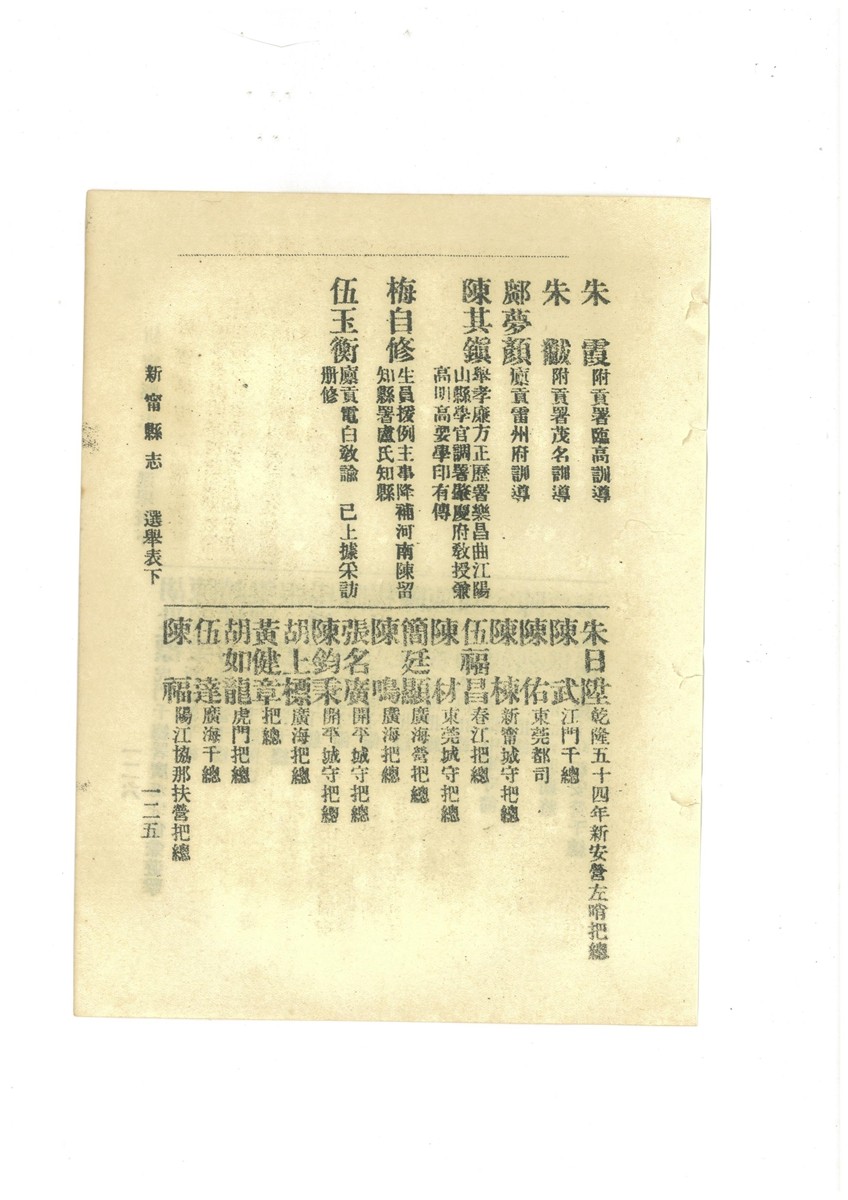 朱　霞附貢署臨高訓導
朱　黻附貢署茂名訓導
鄺夢顏廩貢雷州府訓導
陳其鎭舉孝廉方正歷署樂昌曲江陽
山縣學官調署肇慶府敎授兼
高明高要學印有傳
梅自修生員援例主事降補河南陳留
知縣署盧氏知縣
伍玉衡廩貢電白敎諭　已上據采訪
册修
朱日陞乾隆五十四年新安營左哨把總
陳　武江門千總
陳　佑東莞都司
陳　棟新甯城守把總
伍福昌春江把總
陳　材東莞城守把總
簡廷顯廣海營把總
陳　鳴廣海把總
張名廣開平城守把總
陳鈞秉開平城守把總
胡上標廣海把總
黃健章把總
胡如龍虎門把總
伍　達廣海千總
陳　福陽江協那扶營把總
新甯縣志　選舉表下
一二五